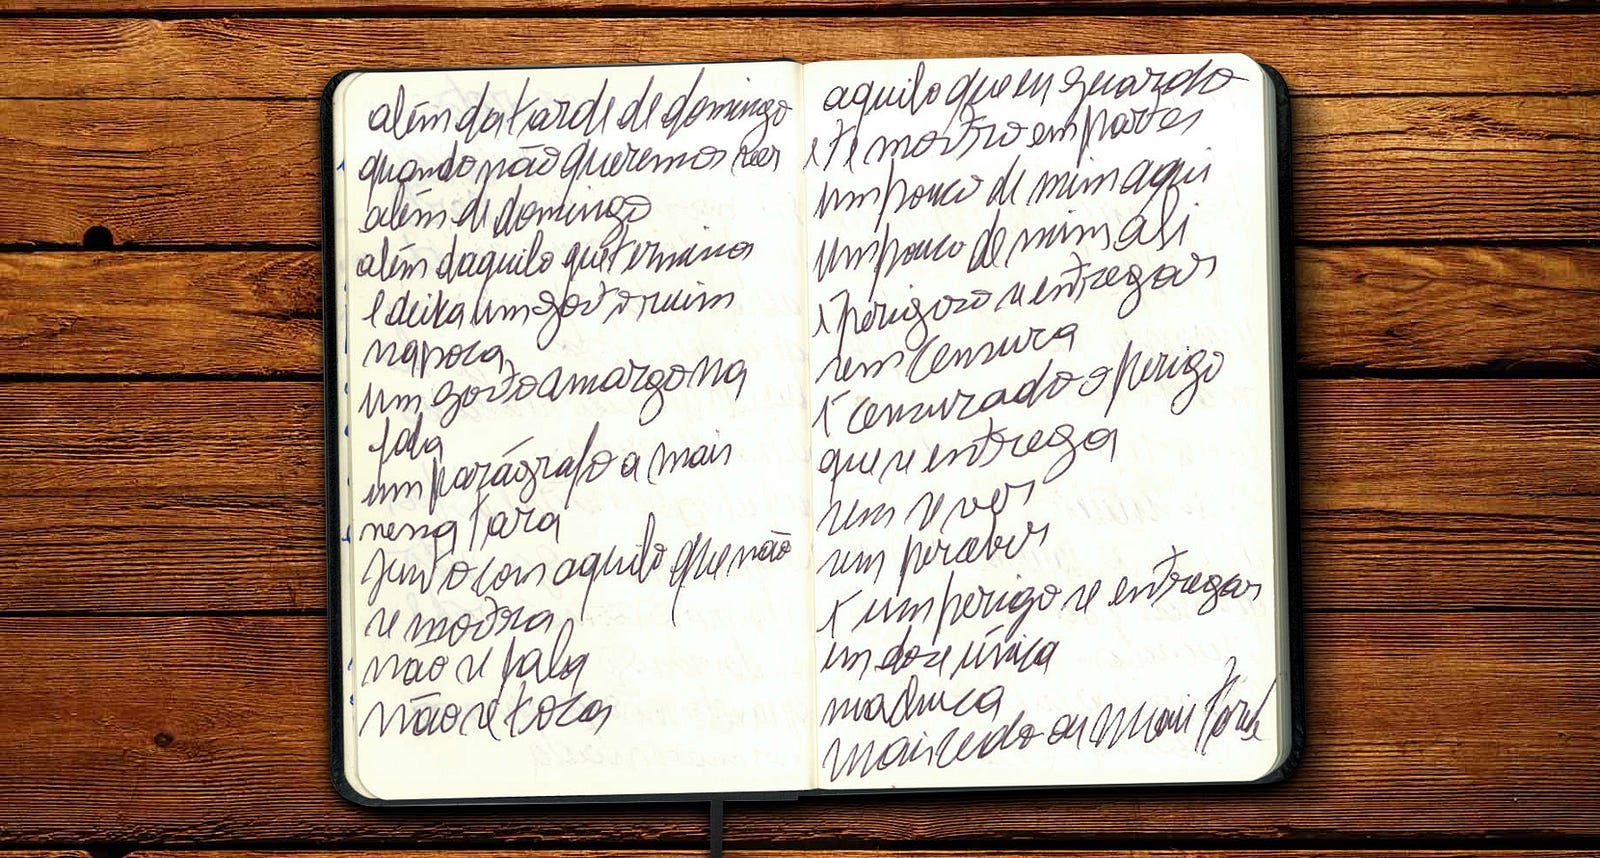 além da tarde de domingo
quando não queremos ser
além de domingo
além daquilo que termina
e deixa um gosto ruim
na boca
um gosto amargo na
fala
um parágrafo a mais
nessa tara
junto com aquilo que não
se mostra
não se fala
não se toca
aquilo que eu guardo
e te mostro em partes
um pouco de mim aqui
um pouco de mim ali
é perigoso se entregar
sem censura
é censurado o perigo
que se entrega
sem se ver
sem perceber
é um perigo se entregar
em dose única
machuca
mais cedo ou mais tarde